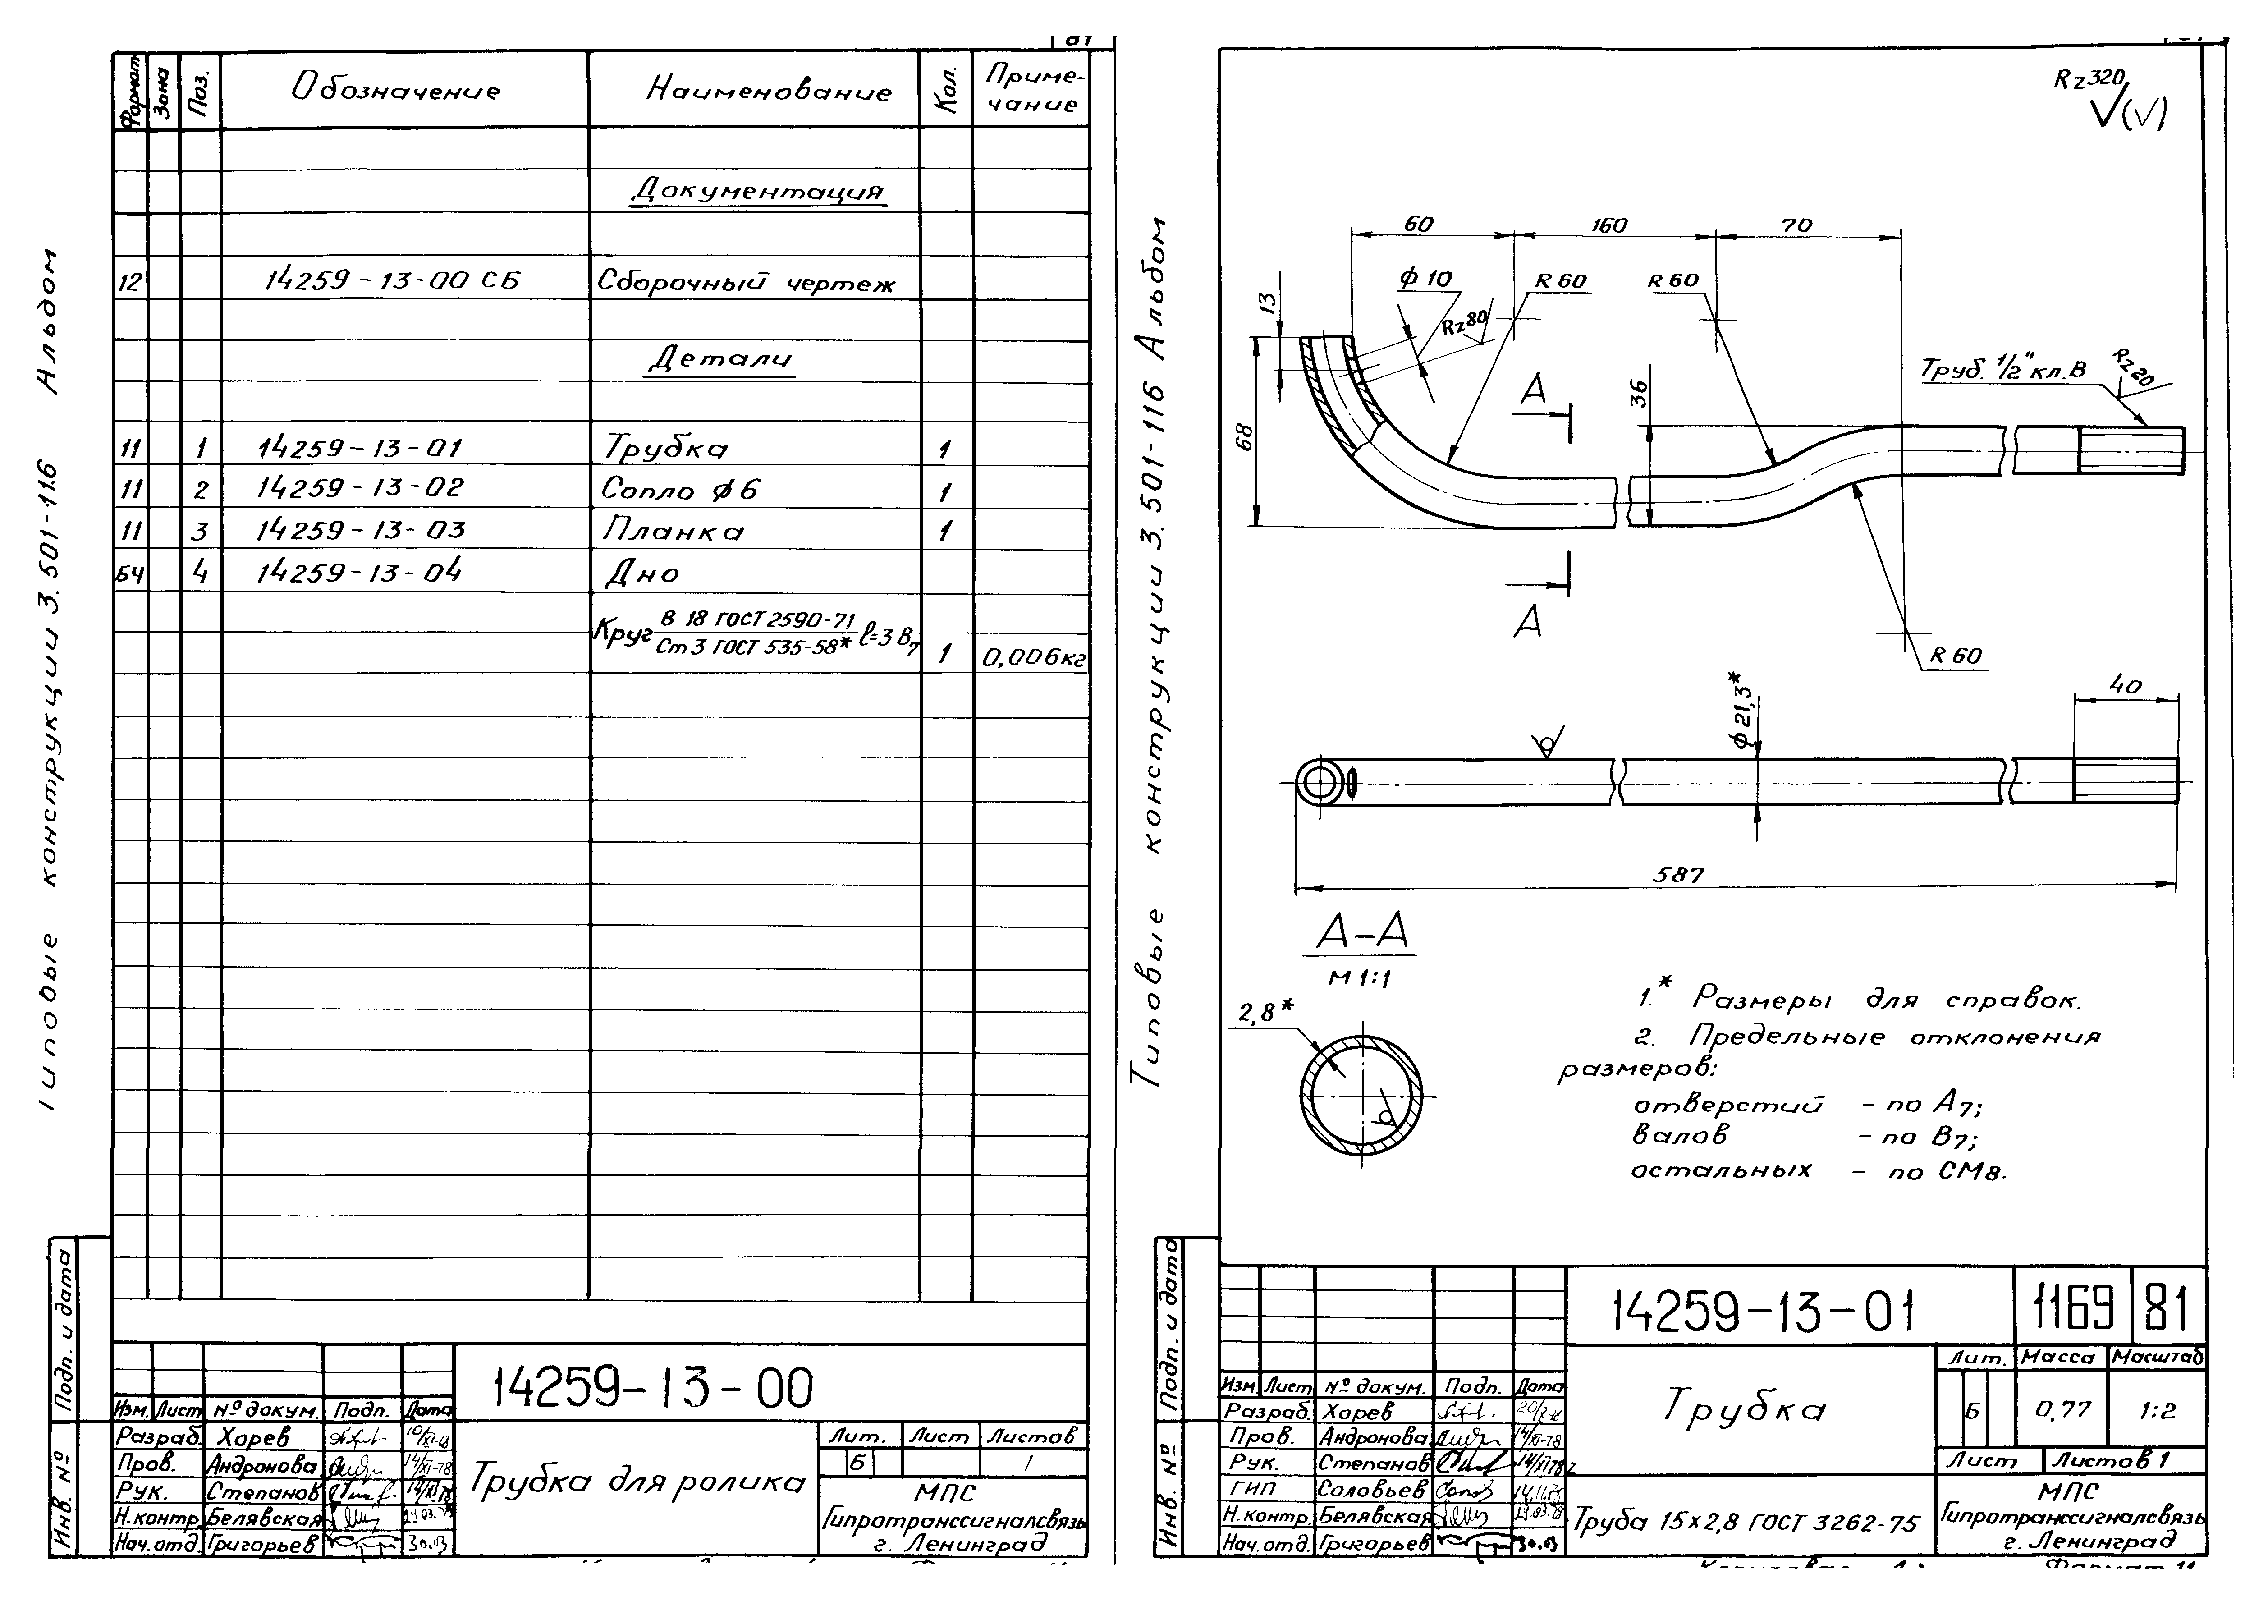 Типовые конструкции 3.501-116 Альбом
81
Формат Зона Поз. Обозначение Наименование Кол. Приме-
чание
Документация
12 14259-13-00 СБ Сборочный чертеж
Детали
11 1 14259-13-01 Трубка 1
11 2 14259-13-02 Сопло ϕ6 1
11 3 14259-13-03 Планка 1
БЧ 4 14259-13-04 Дно
Круг В 18 ГОСТ 2590-71
Ст3 ГОСТ 535-58* ℓ=3 В7 1 0,006кг
Подп. и дата
Инв. №
14259-13-00
Изм. Лист № докум. Подп. Дата
Разраб. Харев
Пров. Андронова 14/XI-78
Рук. Степанов 14/XI 78
Н.контр. Белявская
Нач.отд. Григорьев
Трубка для ролика
Лит. Лист Листов
Б 1
МПС
Гипротранссигналсвязь
г. Ленинград
Типовые конструкции 3.501-116 Альбом
Rz320 (√)
60 160 70
13
ϕ 10
Rz80
R 60
R 60
68
А
36
Труб. 1/2" кл.В
Rz20
А
R 60
ϕ 21,3*
40
587
А-А
М 1:1
2,8*
1.* Размеры для справок.
2. Предельные отклонения
размеров:
отверстий - по А7;
валов - по В7;
остальных - по СМ8.
Подп. и дата
Инв. №
14259-13-01 1169 81
Изм. Лист № докум. Подп. Дата
Разраб. Харев
Пров. Андронова 14/XI-78
Рук. Степанов 14/XI 78
ГИП Соловьев
Н.контр. Белявская
Нач.отд. Григорьев
Трубка
Лит. Масса Масштаб
Б 0,77 1:2
Лист Листов 1
Труба 15×2,8 ГОСТ 3262-75
МПС
Гипротранссигналсвязь
г. Ленинград
Формат 11